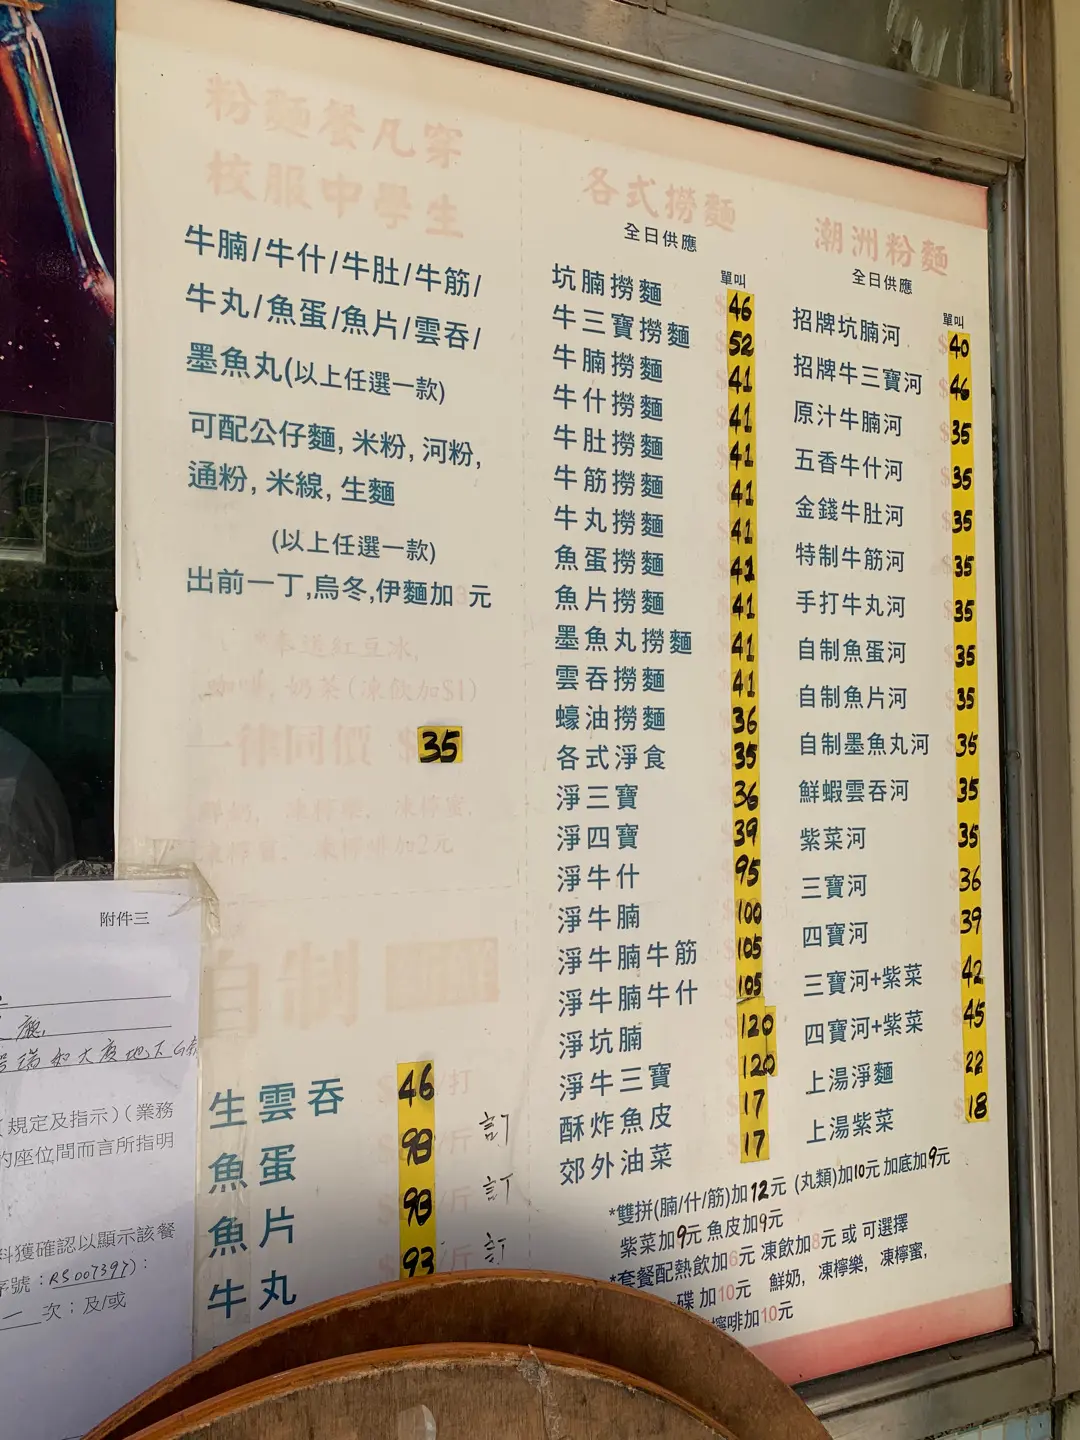 粉麵餐凡穿
校服中學生
牛腩/牛什/牛肚/牛筋/
牛丸/魚蛋/魚片/雲吞/
墨魚丸(以上任選一款)
可配公仔麵, 米粉, 河粉,
通粉, 米線, 生麵
(以上任選一款)
出前一丁,烏冬,伊麵加3元
*奉送紅豆冰,
咖啡, 奶茶(凍飲加$1)
一律同價 $35
鮮奶, 凍檸樂, 凍檸蜜,
凍檸賓, 凍檸啡加2元
自制
生雲吞 46 /打
魚蛋 93 /斤 訂
魚片 93 /斤 訂
牛丸 93 /斤 訂
各式撈麵
全日供應
單叫
坑腩撈麵 $46
牛三寶撈麵 $52
牛腩撈麵 $41
牛什撈麵 $41
牛肚撈麵 $41
牛筋撈麵 $41
牛丸撈麵 $41
魚蛋撈麵 $41
魚片撈麵 $41
墨魚丸撈麵 $41
雲吞撈麵 $41
蠔油撈麵 $36
各式淨食 $35
淨三寶 $36
淨四寶 $39
淨牛什 $95
淨牛腩 $100
淨牛腩牛筋 $105
淨牛腩牛什 $105
淨坑腩 $120
淨牛三寶 $120
酥炸魚皮 $17
郊外油菜 $17
潮洲粉麵
全日供應
單叫
招牌坑腩河 $40
招牌牛三寶河 $46
原汁牛腩河 $35
五香牛什河 $35
金錢牛肚河 $35
特制牛筋河 $35
手打牛丸河 $35
自制魚蛋河 $35
自制魚片河 $35
自制墨魚丸河 $35
鮮蝦雲吞河 $35
紫菜河 $35
三寶河 $36
四寶河 $39
三寶河+紫菜 $42
四寶河+紫菜 $45
上湯淨麵 $22
上湯紫菜 $18
*雙拼(腩/什/筋)加12元 (丸類)加10元 加底加9元
紫菜加9元 魚皮加9元
*套餐配熱飲加6元 凍飲加8元 或 可選擇
碟 加10元 鮮奶, 凍檸樂, 凍檸蜜,
檸啡加10元
附件三
廳
瑞和大廈地下G
(規定及指示)(業務
的座位間而言所指明
料獲確認以顯示該餐
序號：RS007397)：
一 次；及/或